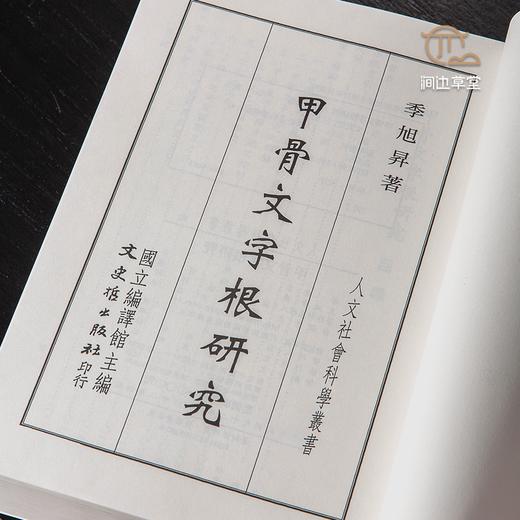 季旭昇著
人文社會科學叢書
甲骨文字根研究
國立編譯館主編
文史哲出版社印行
涧边草堂